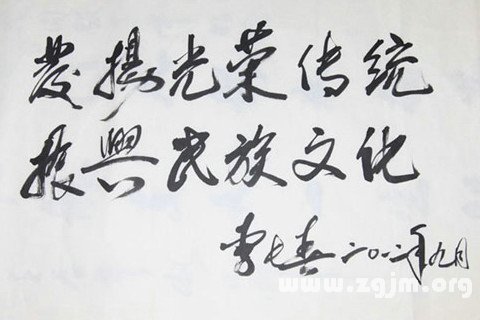 發揚光荣传统
振興民族文化
李七春二〇一二年九月
www.zgjm.org